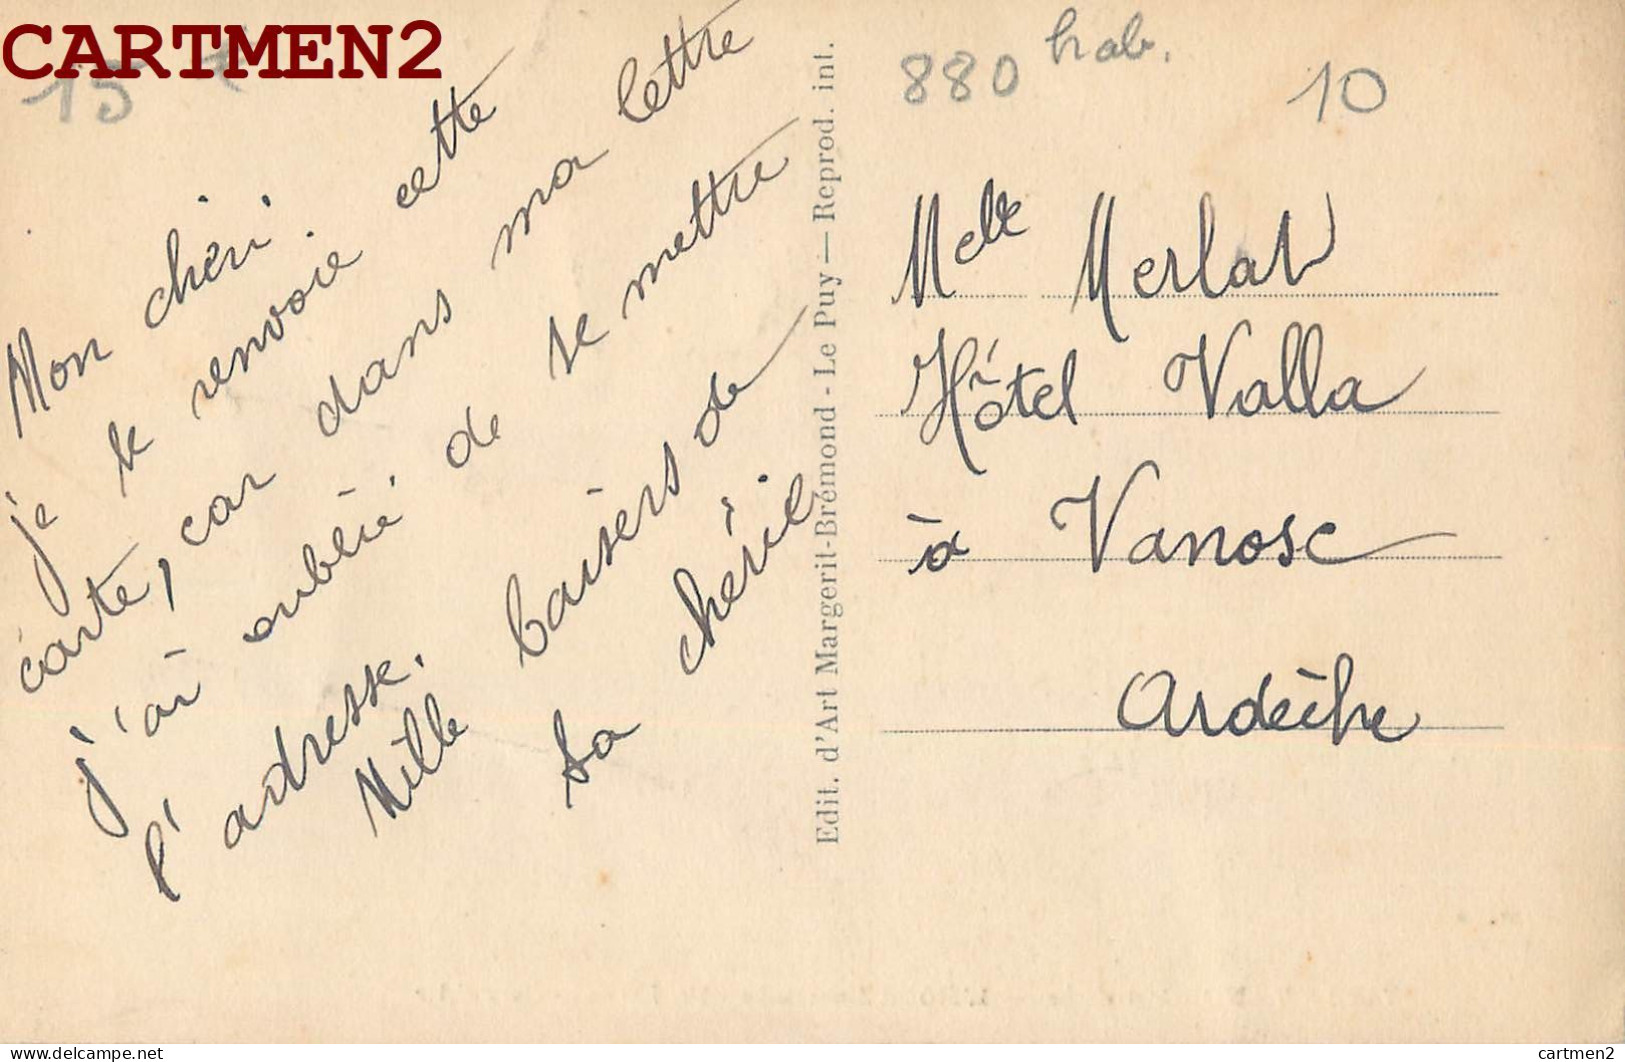 CARTMEN2
15 F
Mon chéri.
je te renvoie cette
carte, car dans ma lettre
j'ai oublié de te mettre
l'adresse.
Mille baisers de
ta chérie
Edit. d'Art Margerit-Brémond - Le Puy — Reprod. int.
880 hab.
10
Melle Merlat
Hôtel Valla
à Vanosc
Ardèche
cartmen2
https://www.delcampe.net